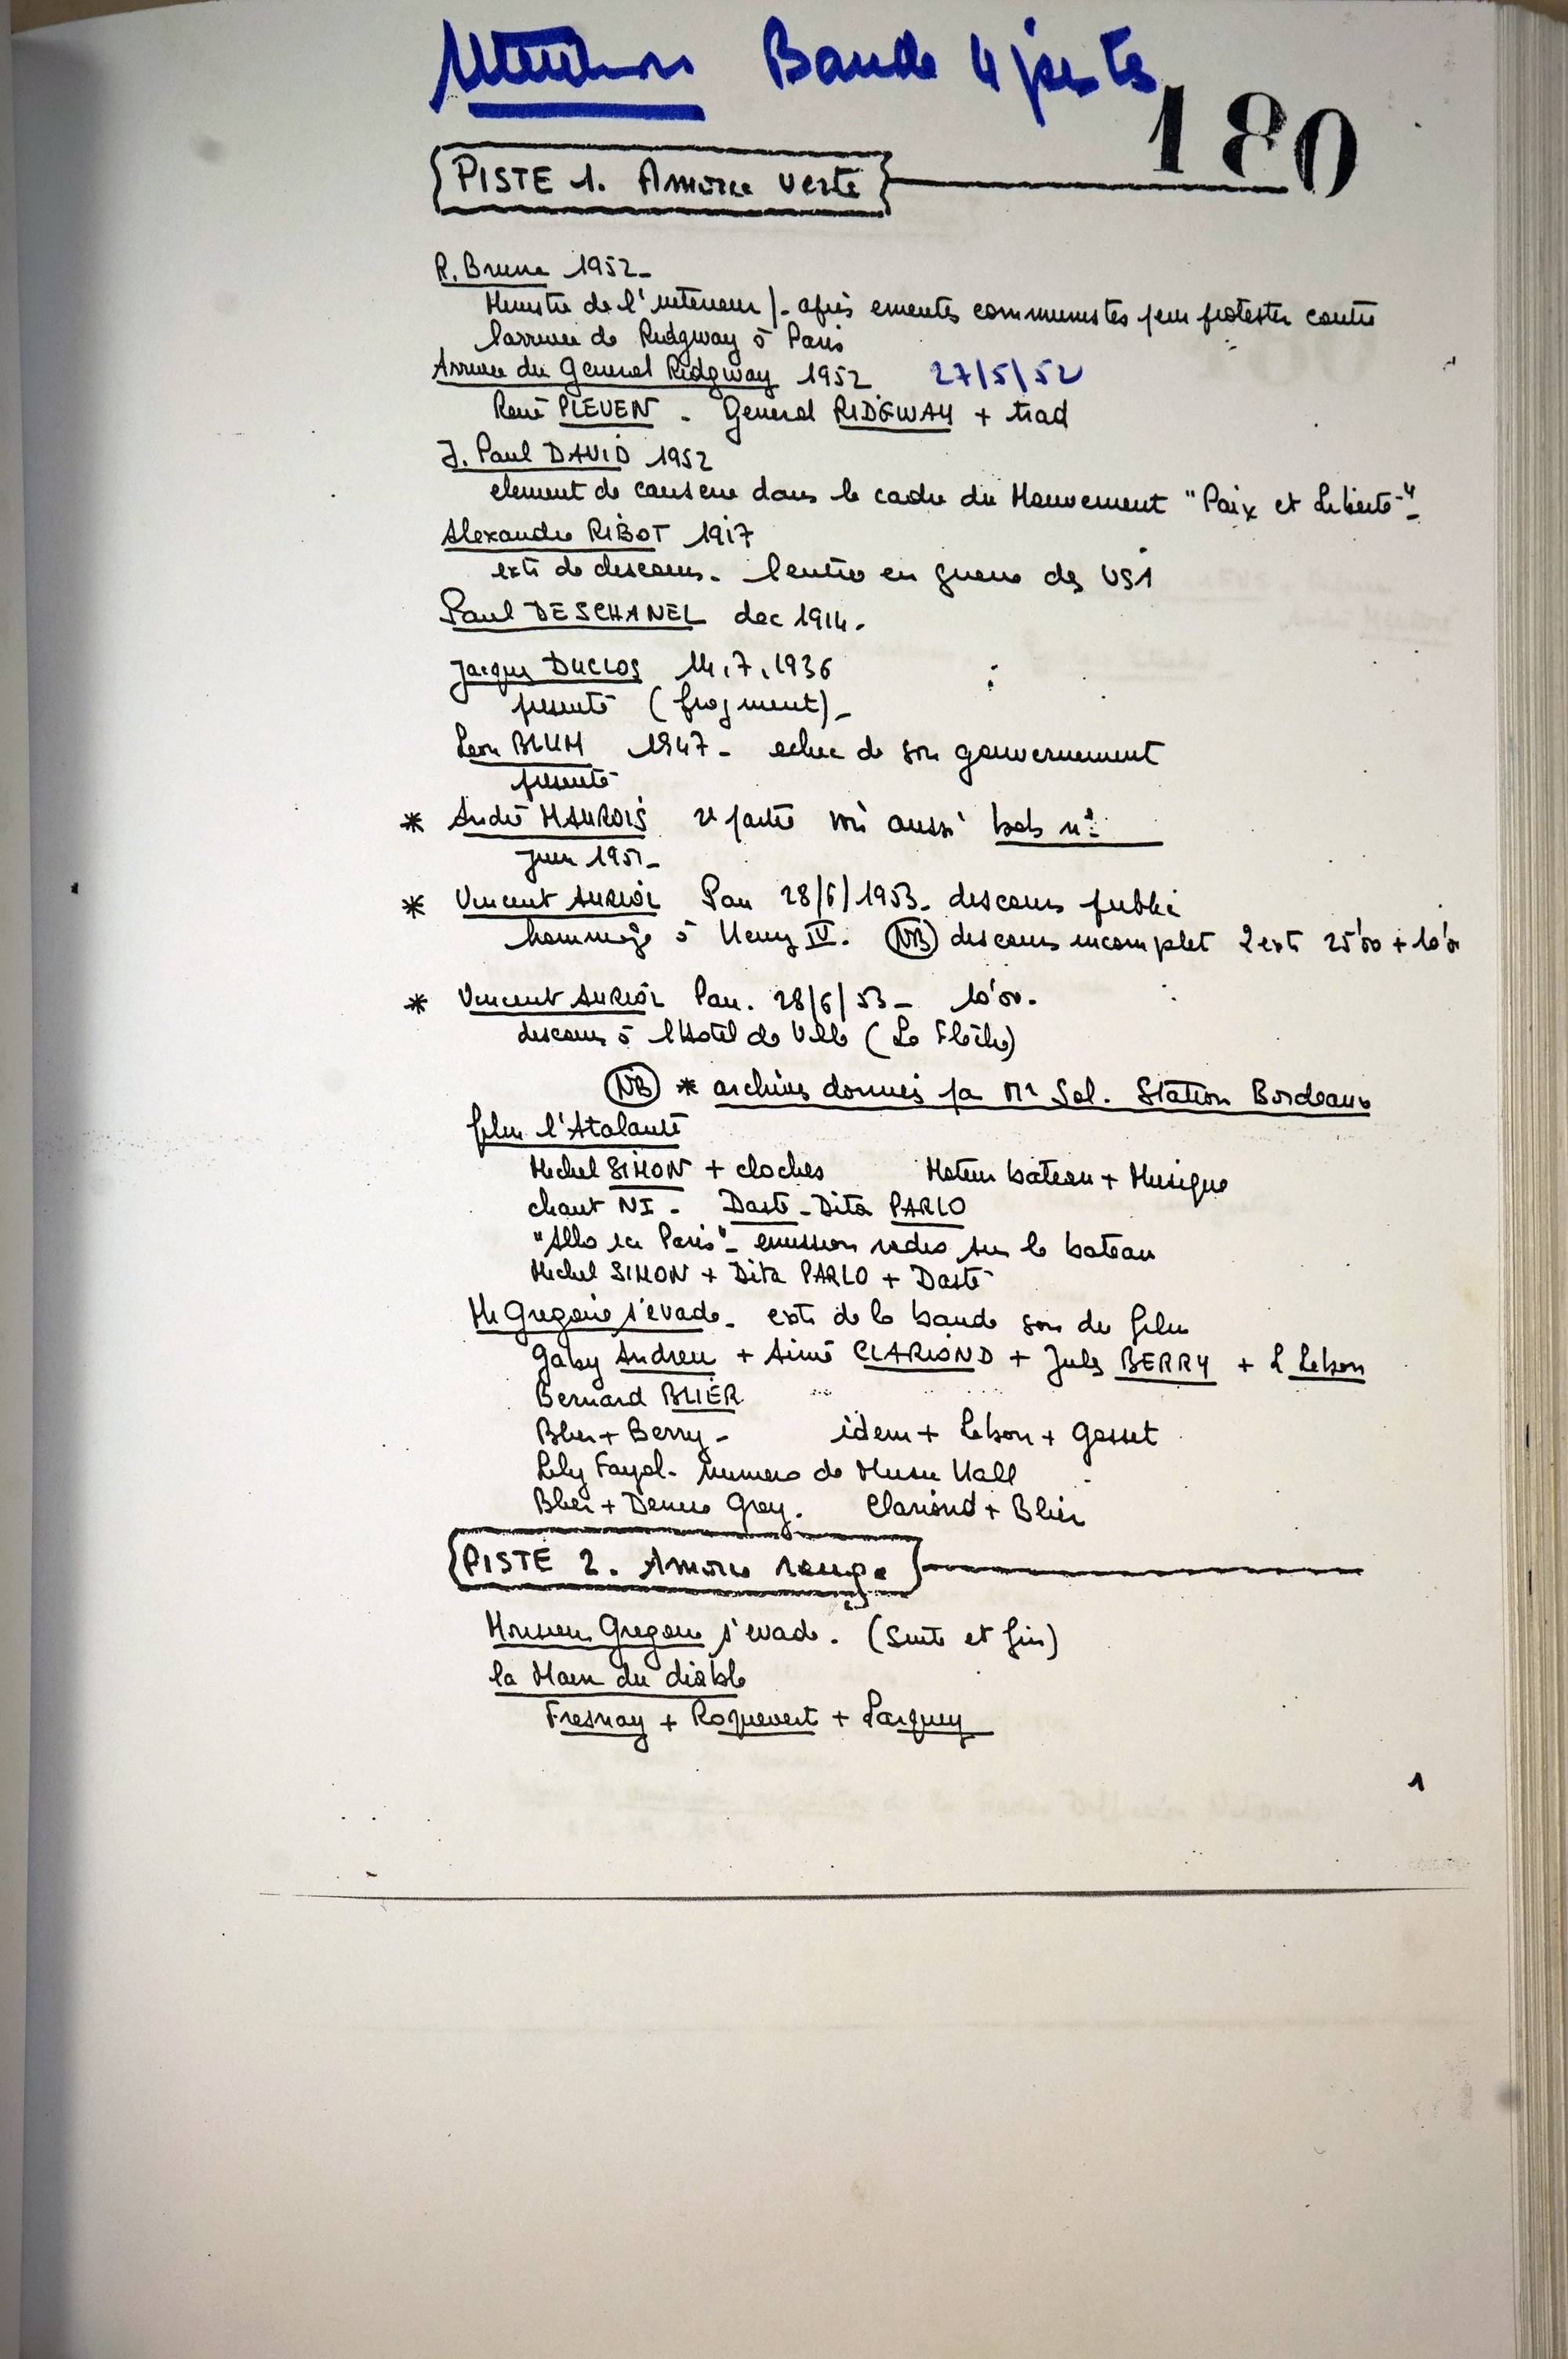 Attention Bande 4 pistes
180
PISTE 1. Amorce verte
R. Brune 1952_
Ministre de l'interieur /_ après emeutes communistes pour protester contre
l'arrivee de Ridgway à Paris
Arrivee du General Ridgway 1952 27/5/52
René PLEVEN - General RIDGWAY + trad
J. Paul DAVID 1952
element de causerie dans le cadre du Mouvement "Paix et Liberté"_
Alexandre RIBOT 1917
extr de discours. l'entrée en guerre des USA
Paul DESCHANEL dec 1914.
Jacques DUCLOS 14.7.1936
presenté (fragment)_
Leon BLUM 1947_ echec de son gouvernement
presenté
* André MAUROIS 2e partie voir aussi bob n°
juin 1951_
* Vincent AURIOL Pau 28/6/1953_ discours public
hommage à Henry IV. NB discours incomplet 2 extr 25'00 + 10'00
* Vincent AURIOL Pau. 28/6/53_ 10'00.
discours à l'Hotel de Ville (La Flèche)
NB * archives donnees par Mr Sol. Station Bordeaux
film l'Atalante
Michel SIMON + cloches Moteur bateau + Musique
chant NI - Dasté - Dita PARLO
"Allo ici Paris"_ emission radio sur le bateau
Michel SIMON + Dita PARLO + Dasté
Mr Gregoire s'evade_ extr de la bande son du film
Gaby Andreu + Aimé CLARIOND + Jules BERRY + L Lebon
Bernard BLIER
Blier + Berry - idem + Lebon + Gosset
Lily Fayol - numero de Music Hall
Blier + Denise Grey. Clariond + Blier
PISTE 2. Amorce rouge
Monsieur Gregoire s'evade. (Suite et fin)
la Main du diable
Fresnay + Roquevert + Larquey
1